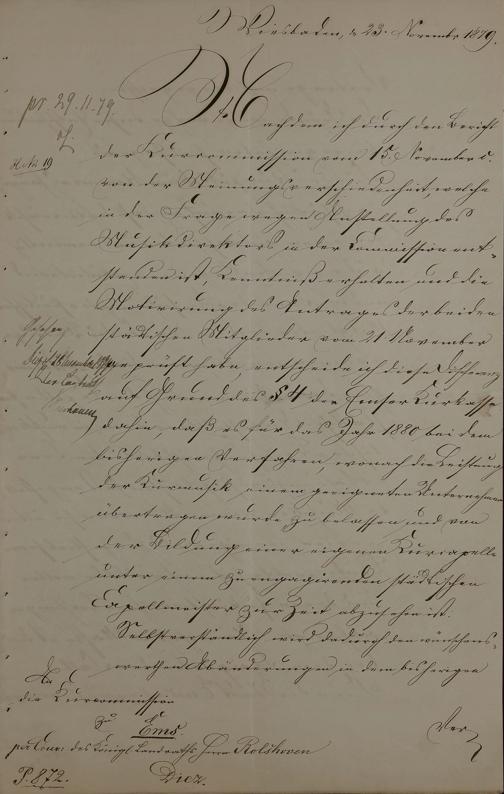 Wiesbaden, d. 23. November 1879.
pr. 29.11.79.
Nachdem ich durch den Bericht
der Kurcommission vom 15. November c.
von der Meinungsverschiedenheit, welche
in der Frage wegen Anstellung des
Musikdirektors in der Commission ent-
standen ist, Kenntniß erhalten und die
Motivirung des Antrages der beiden
städtischen Mitglieder vom 21 November
geprüft habe, entscheide ich diese Differenz
auf Grund des § 4 der Emser Kurkasse
dahin, daß es für das Jahr 1880 bei dem
bisherigen Verfahren, wonach die Leistung
der Kurmusik einem geeigneten Unternehmer
übertragen wurde zu belassen und von
der Bildung einer eigenen Kurcapelle
unter einem zu engagirenden städtischen
Capellmeister zur Zeit abzusehen ist.
Selbstverständlich wird dadurch den wünschens-
werthen Abänderungen in dem bisherigen
Ver
An
die Kurcommission
zu Ems.
per Cour: des Königl. Landraths Herrn Rolshoven
Diez.
P. 872.